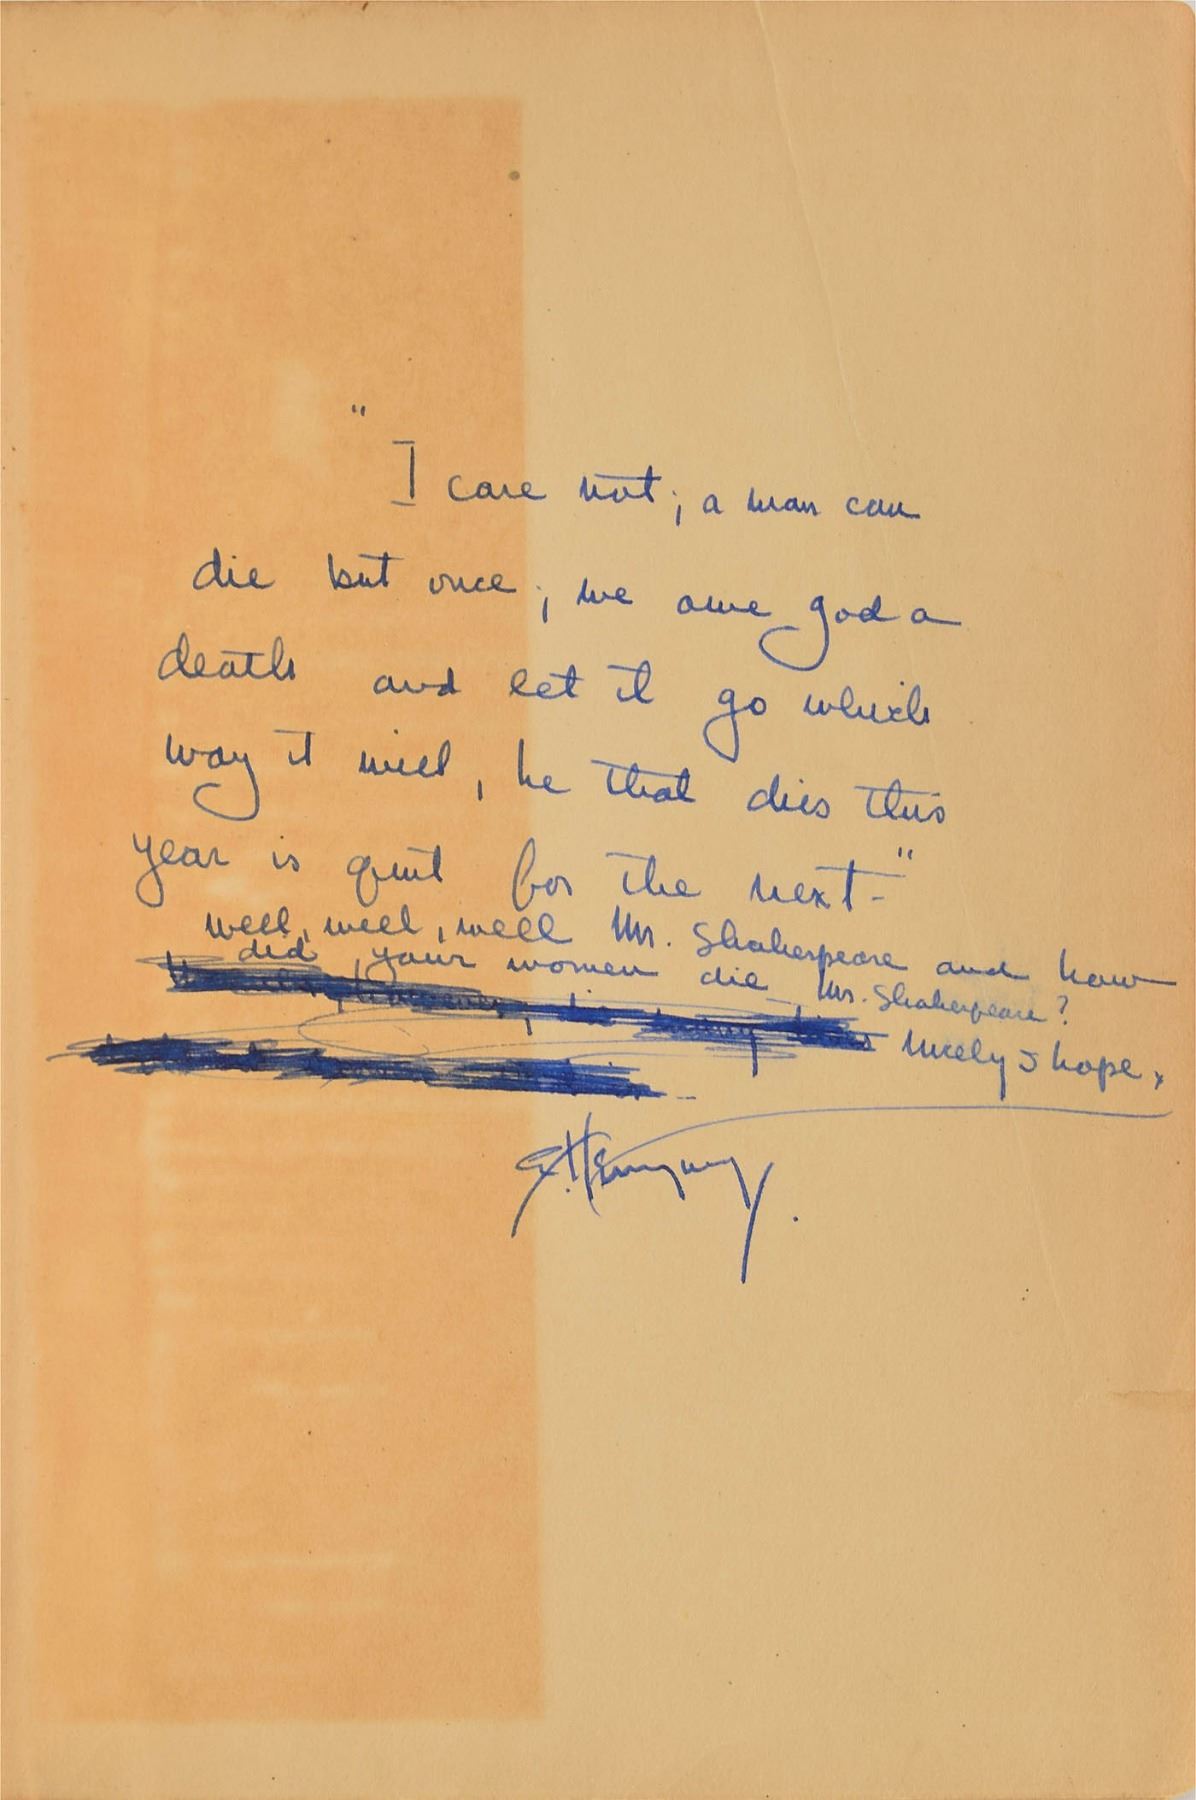 "
I care not; a man can
die but once; we owe god a
death and let it go which
way it will, he that dies this
year is quit for the next-"
well, well, well Mr. Shakespeare and how
did your women die Mr. Shakespeare?
nicely I hope.
E. Hemingway.